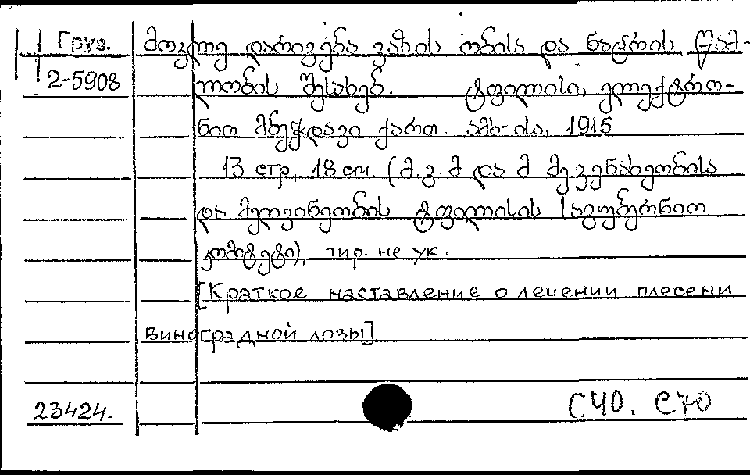 Груз. მოკლე დარიგება ვაზის ობისა და ნაცრის წამ-
2-5908 ლობის შესახებ. ტფილისი, ელექტრო-
ნით მბეჭდავი ქართ. ამხ-ისა, 1915
13 стр, 18 см. (მ.გ.მ და მ მევენახეობისა
და მეღვინეობის ტფილისის საგუბერნიო
კომიტეტი), тир. не ук.
[Краткое наставление о лечении плесени
виноградной лозы]
23424. С40. С70